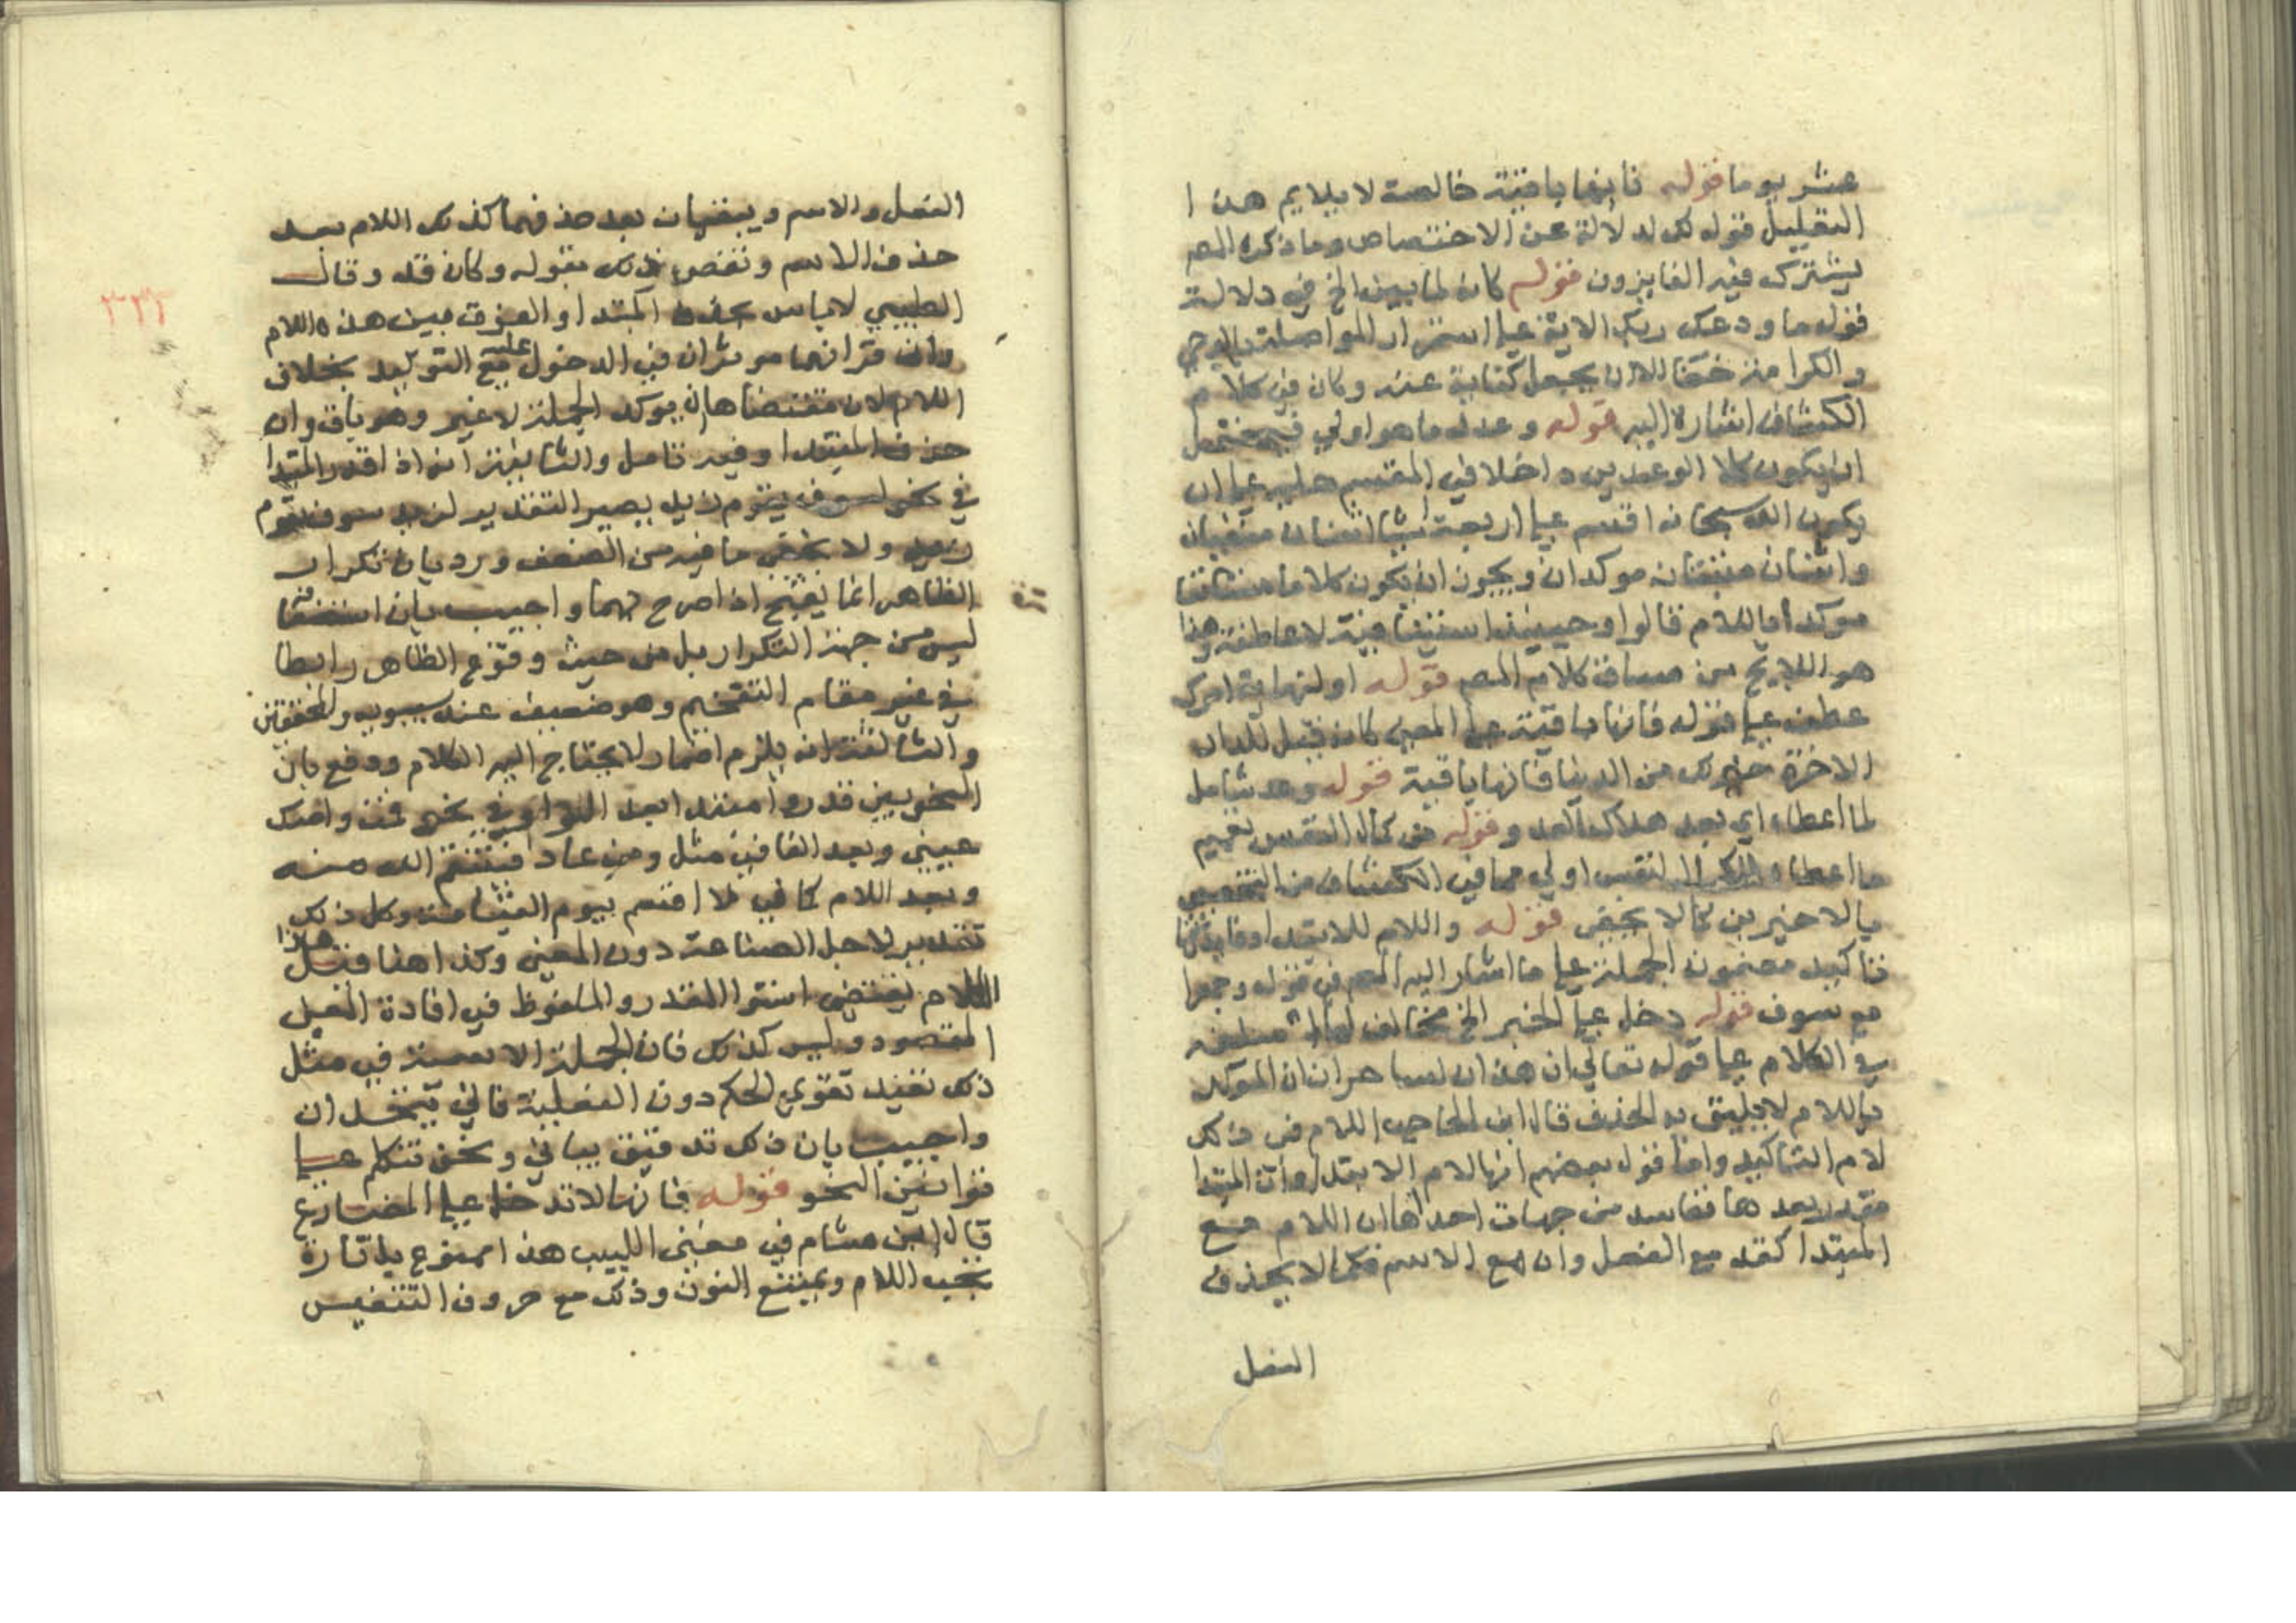 عشر يوما قوله فانها باقية خالصة لا يلايم هذا
التعليل قوله لك لدلالة عن الاختصاص وما ذكره المص
يشترك فيه الفايزون قوله كان لما بين الخ في دلالة
قوله ما ودعك ربك الاية على استمرار المواصلة بالوحي
والكرامة للان يجعل كناية عنه وكان في كلام
الكشاف اشارة اليه قوله وعد له ما هو اولي فيحتمل
ان يكون كلا الوعدين داخلا في المقسم عليه على ان
يكون الله سبحانه اقسم على اربعة اثنان منفيان
واثنان مثبتان موكدان ويجوز ان يكون كلاما مستانفا
موكدا باللام قالوا وحينيذ استينافية لا عاطفة وهذا
هو اللايح من مساق كلام المص قوله او لنهاية امرك
عطف على قوله فانها باقية على المعني كانه قيل للدار
الاخرة خير لك من الدنيا فانها باقية قوله وعد شامل
لما اعطاه اي بعد هلاك العد و قوله من كمال النفس تعميم
ما اعطاه لكمال النفس اولي مما في الكشاف من التخصيص
بالاخيرين كما لا يخفى قوله واللام للابتدا وفايدتها
تاكيد مضمون الجملة على ما اشار اليه المص في قوله وجمعها
مع سوف قوله دخل على الخبر الخ مخالف لما اسلفه
في الكلام على قوله تعالي ان هذان لساحران ان الموكد
باللام لا يليق به الحذف قال ابن الحاجب اللام في ذلك
لام التاكيد واما قول بعضهم انها لام الابتدا وان المبتدا
مقدر بعدها ففاسد من جهات احداها ان اللام مع
المبتدا كقد مع الفعل وان مع الاسم فكما لا يحذف
الفعل
الفعل والاسم ويبقيان بعد حذفهما كذلك اللام بعد
حذف الاسم ونقض ذلك بقوله وكان قد وقال
الطيبي لا باس بحذف المبتدا والفرق بين هذه اللام
وان قد انهما موثران في الدخول عليه مع التوكيد بخلاف
اللام لان مقتضاها ان يوكد الجملة لا غير وهو باق وان
حذف المبتدا وفيه تامل والثانية انه اذا قدر المبتدا
في نحو لسوف يقوم زيد يصير التقدير لزيد سوف يقوم
زيد ولا يخفى ما فيه من الضعف ورد بان تكرار
الظاهر انما يقبح اذا صرح بهما واجيب بان استقباحه
ليس من جهة التكرار بل من حيث وقوع الظاهر رابطا
في غير مقام التفخيم وهو ضعيف عند سيبويه والمحققين
والثالثة انه يلزم اضمار لا يحتاج اليه الكلام ودفع بان
النحويين قدروا مبتدا بعد الواو في نحو قمت واصك
عينه وبعد الفا في مثل ومن عاد فينتقم الله منه
وبعد اللام كما في لا اقسم بيوم القيامة وكل ذلك
تقدير لاجل الصناعة دون المعني وكذا هنا قيل هذا
الكلام يقتضي استوا المقدر والملفوظ في افادة المعنى
المقصود وليس كذلك فان الجملة الاسمية في مثل
ذلك تفيد تقوي الحكم دون الفعلية فاني يتحدان
واجيب بان ذلك تدقيق بياني ونحن نتكلم على
قوانين النحو قوله فانها لا تدخل على المضارع
قال ابن هشام في مغنى اللبيب هذا ممنوع بل تارة
تجب اللام ويمتنع النون وذلك مع حروف التنفيس